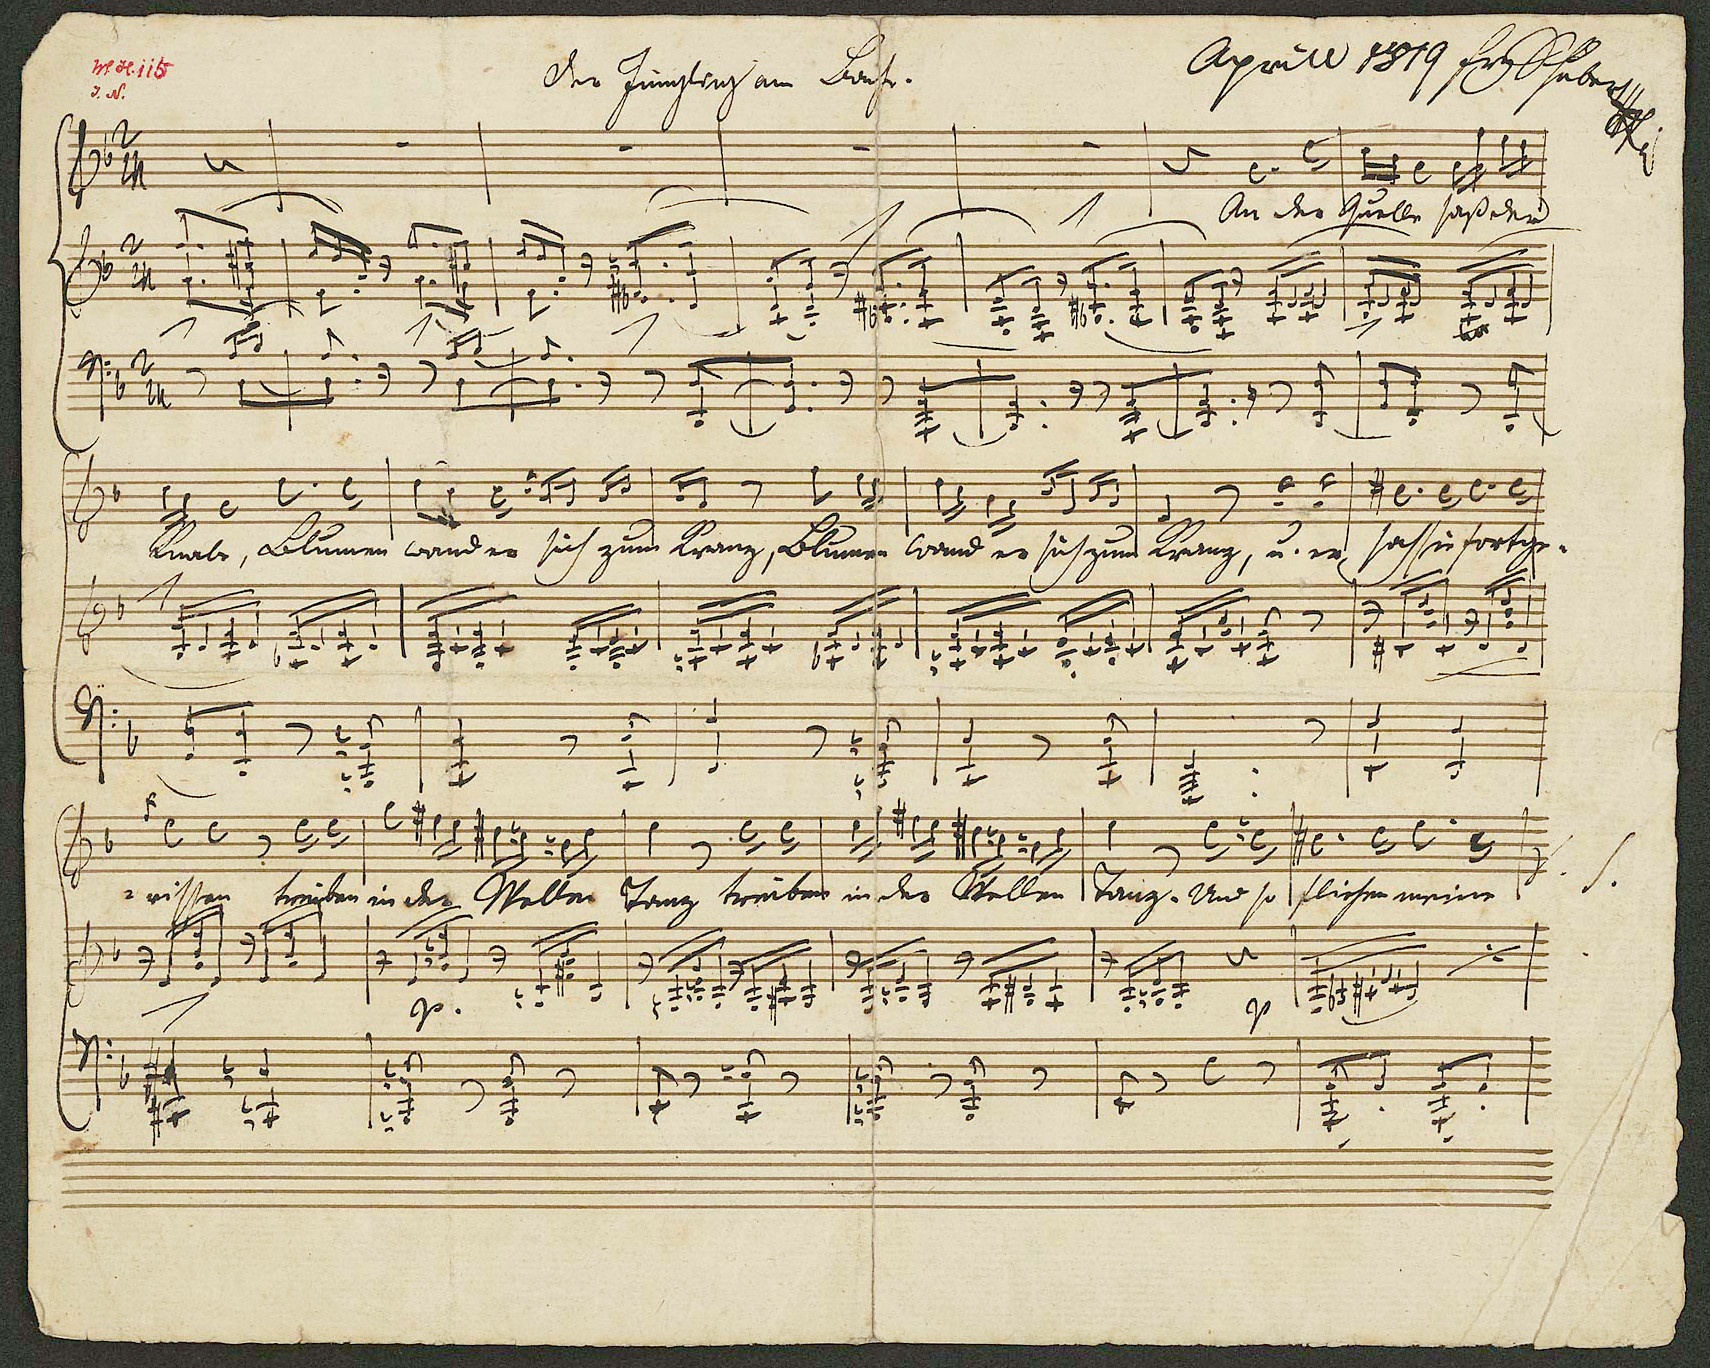 M. H. 115
J. N.
Der Jüngling am Bache.
Aprill 1819 Frz Schubert
An der Quelle saß der
Knabe, Blumen wand er sich zum Kranz, Blumen wand er sich zum Kranz, u. er sah sie fortge-
=rissen treiben in der Wellen Tanz treiben in der Wellen Tanz. Und so fliehen meine
p.
p